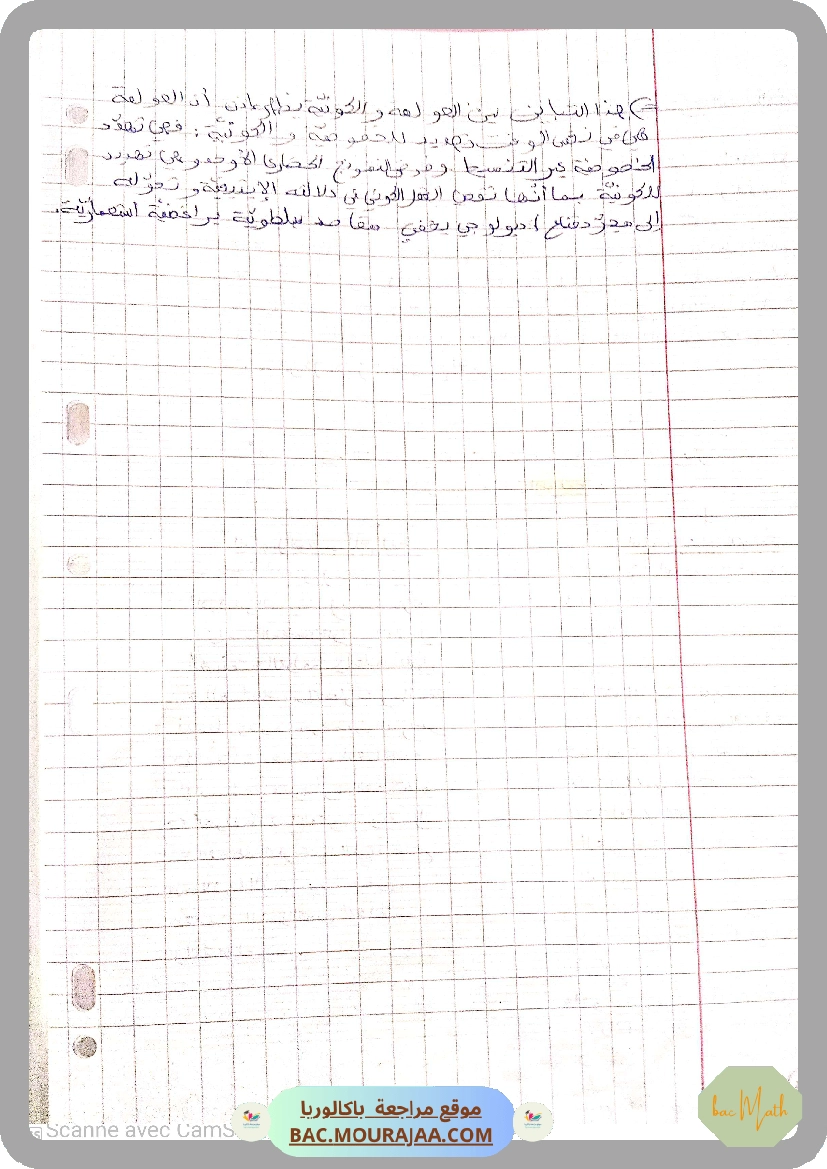 => هذا التباين بين العولمة والكونيّة يدلّ على أن العولمة
هي في نفس الوقت تهديد للخصوصية و الكونيّة: فهي تهدّد
الخصوصية عبر التنميط وفرض النموذج الحضاري الأوحد وهي تهديد
للكونيّة بما أنّها تفرض البعد الكوني في دلالته الإيتيقيّة و تحوّله
إلى مجرّد قناع إديولوجي يخفي مقاصد سلطويّة براغميّة استعماريّة.
موقع مراجعة باكالوريا
BAC.MOURAJAA.COM
bac Math
Scanné avec CamS